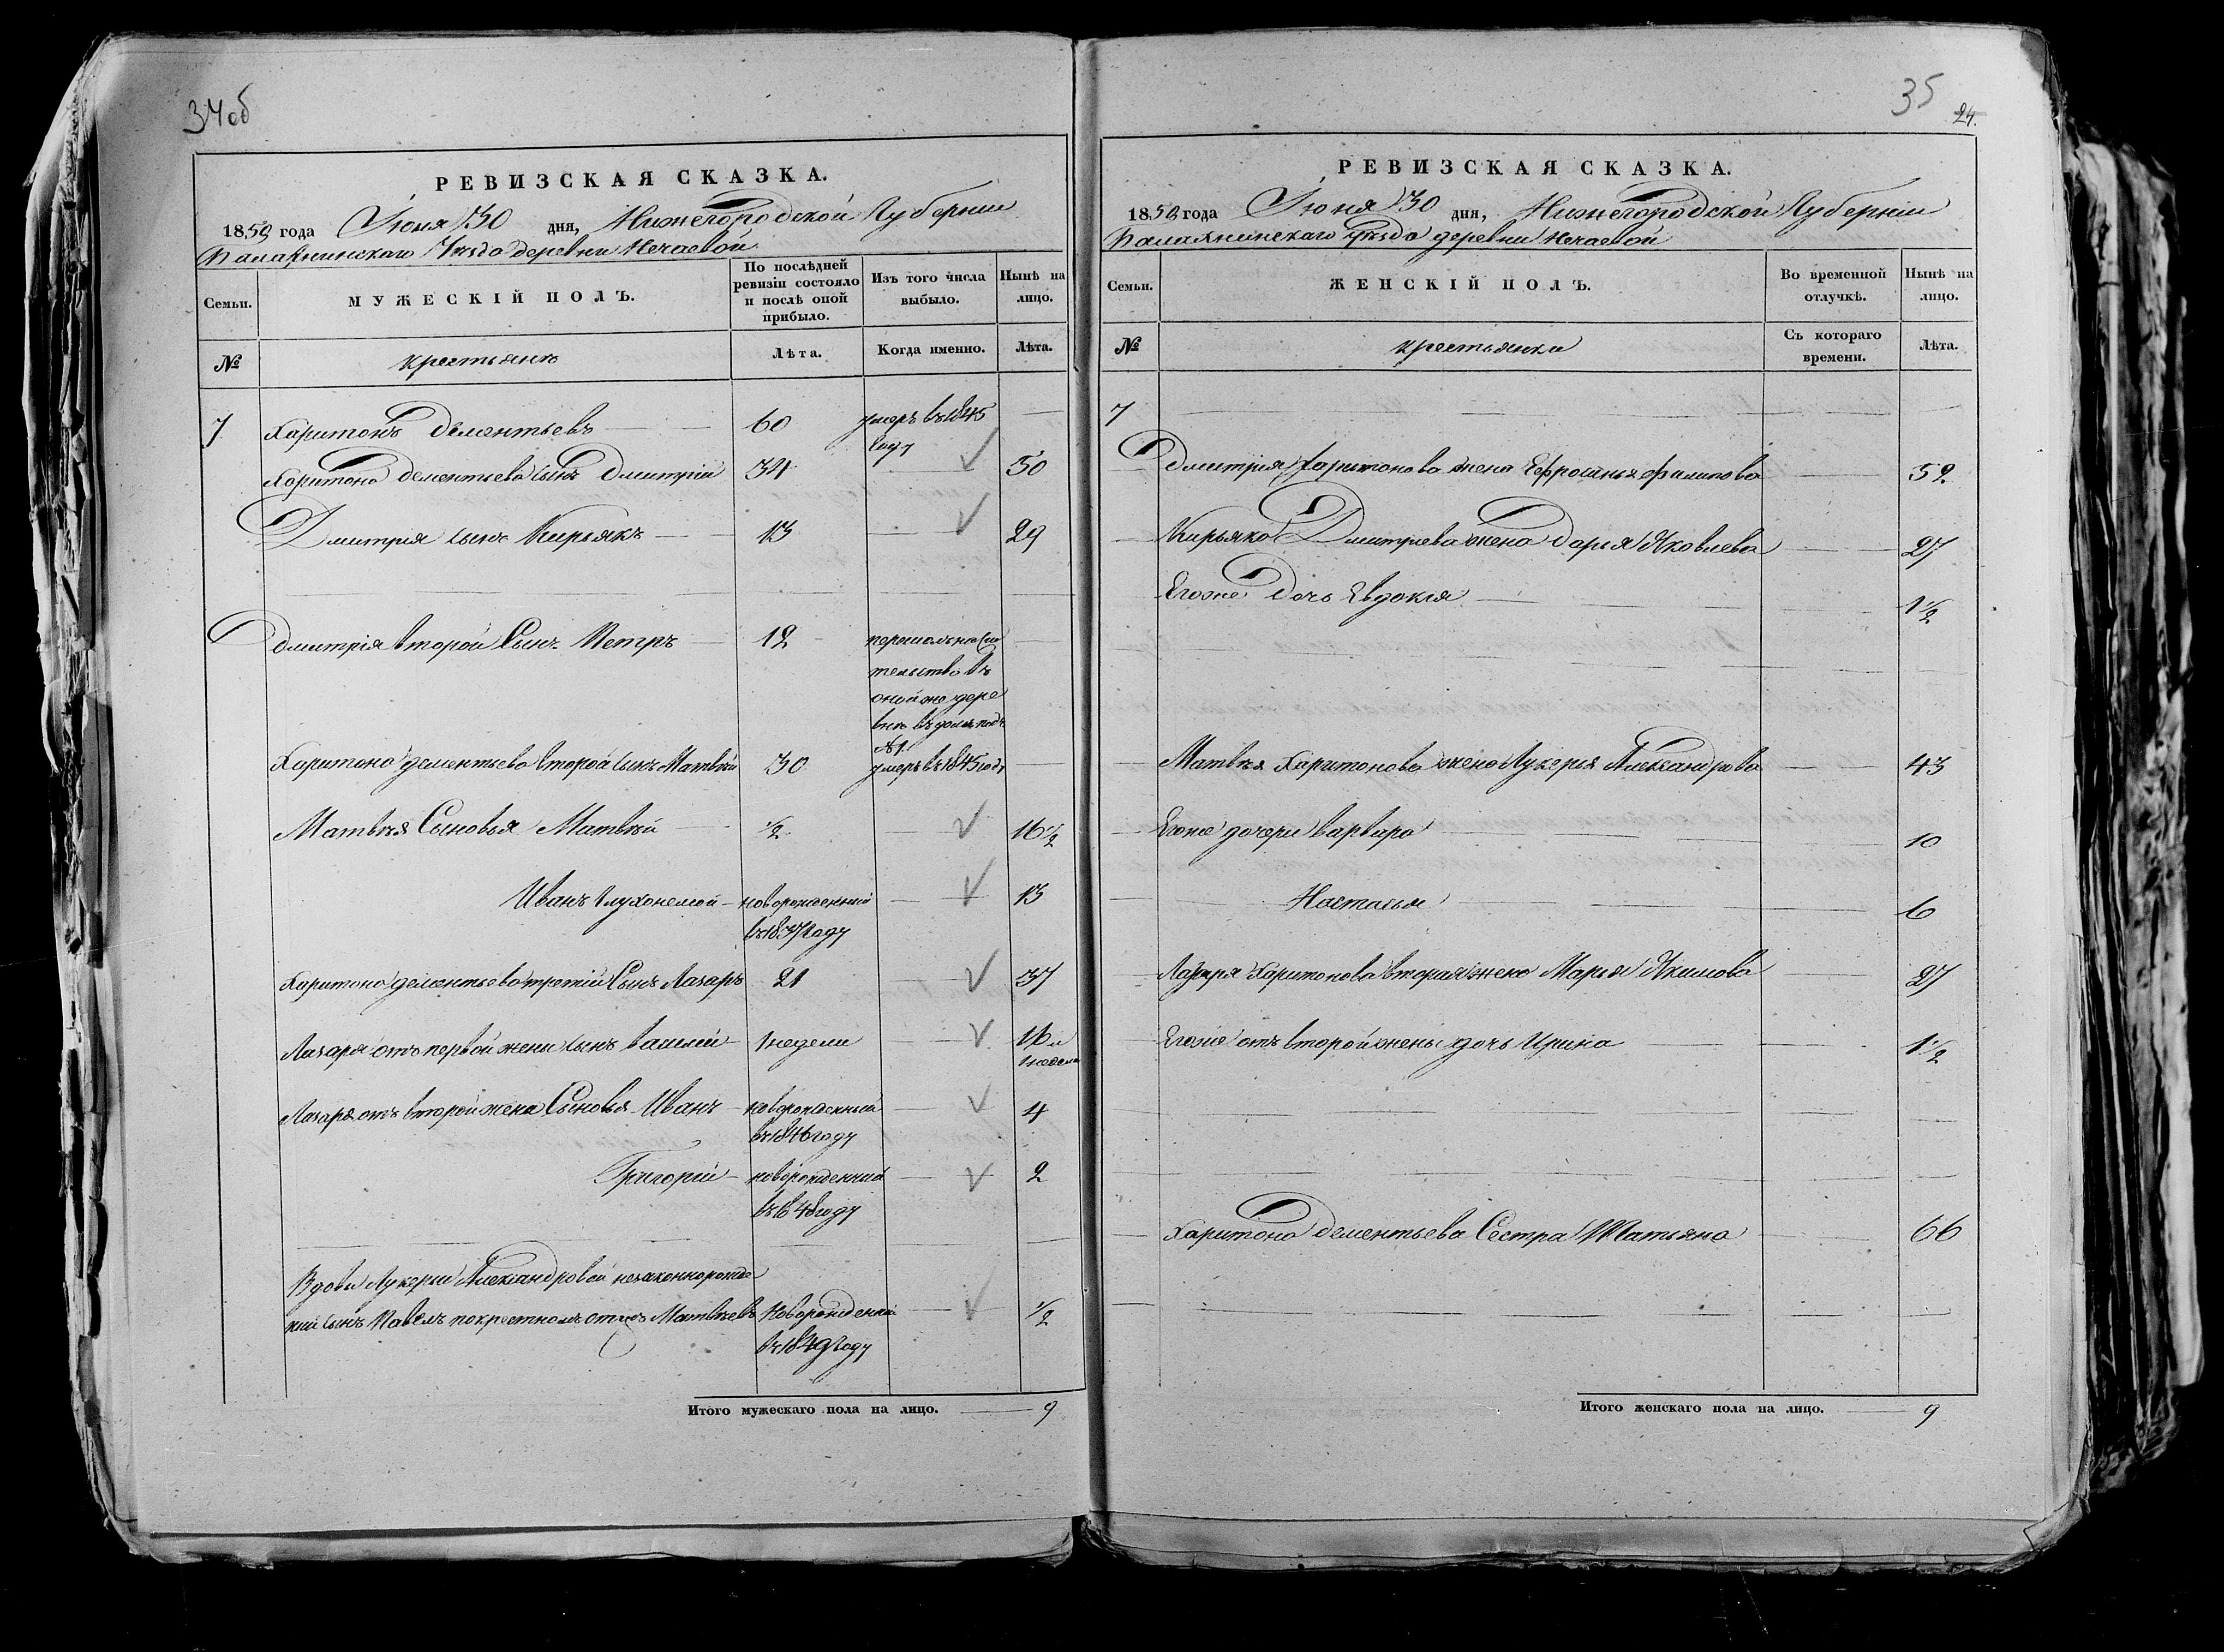 34 об
РЕВИЗСКАЯ СКАЗКА.
1850 года Июня 30 дня, Нижегородской Губернии
Балахнинскаго Уѣзда деревни Нечаевой
Семьи. МУЖЕСКІЙ ПОЛЪ. По послѣдней ревизіи состояло и послѣ оной прибыло. Изъ того числа выбыло. Нынѣ на лицо.
№ крестьянъ Лѣта. Когда именно. Лѣта.
7 Харитонъ Дементьевъ 60 умеръ въ 1845
году
Харитона Дементьева сынъ Дмитрій 34 50
Дмитрія сынъ Кирьякъ 13 29
Дмитрія второй Сынъ Петръ 12
оной же дере
вни въ домъ подъ
№ 1
Харитона Дементьева второй сынъ Матвѣй 30 умеръ въ 1845 году
Матвѣя Сыновья Матвѣй ½ 16½
Иванъ глухонемой новорожденный 13
въ 1837 году
Харитона Дементьева третій Сынъ Лазарь 21 37
Лазаря отъ первой жены сынъ Василій 1 недели 16 и
1 недели
Лазаря отъ второй жены Сыновья Иванъ новорожденный 4
въ 1846 году
Григорій новорожденный 2
въ 1848 году
Вдовы Лукерьи Александровой незаконнорожде
ный сынъ Павелъ по крестномъ отцѣ Матвѣевъ Новорожденный ½
въ 1849 году
Итого мужескаго пола на лицо. 9
35
24.
РЕВИЗСКАЯ СКАЗКА.
1850 года Июня 30 дня, Нижегородской Губерніи
Балахнинскаго уѣзда деревни Нечаевой
Семьи. ЖЕНСКІЙ ПОЛЪ. Во временной отлучкѣ. Нынѣ на лицо.
№ крестьянки Съ котораго времени. Лѣта.
7
Дмитрія Харитонова жена Ефросинья Филипова 52
Кирьяка Дмитриева жена Дарья Яковлева 27
Егоже дочь Евдокия 1½
Матвѣя Харитонова жена Лукерья Александрова 43
Егоже дочери Варвара 10
Настасья 6
Лазаря Харитонова вторая жена Марья Якимова 27
Егоже отъ второй жены дочь Ирина 1½
Харитона Дементьева Сестра Татьяна 66
Итого женскаго пола на лицо. 9